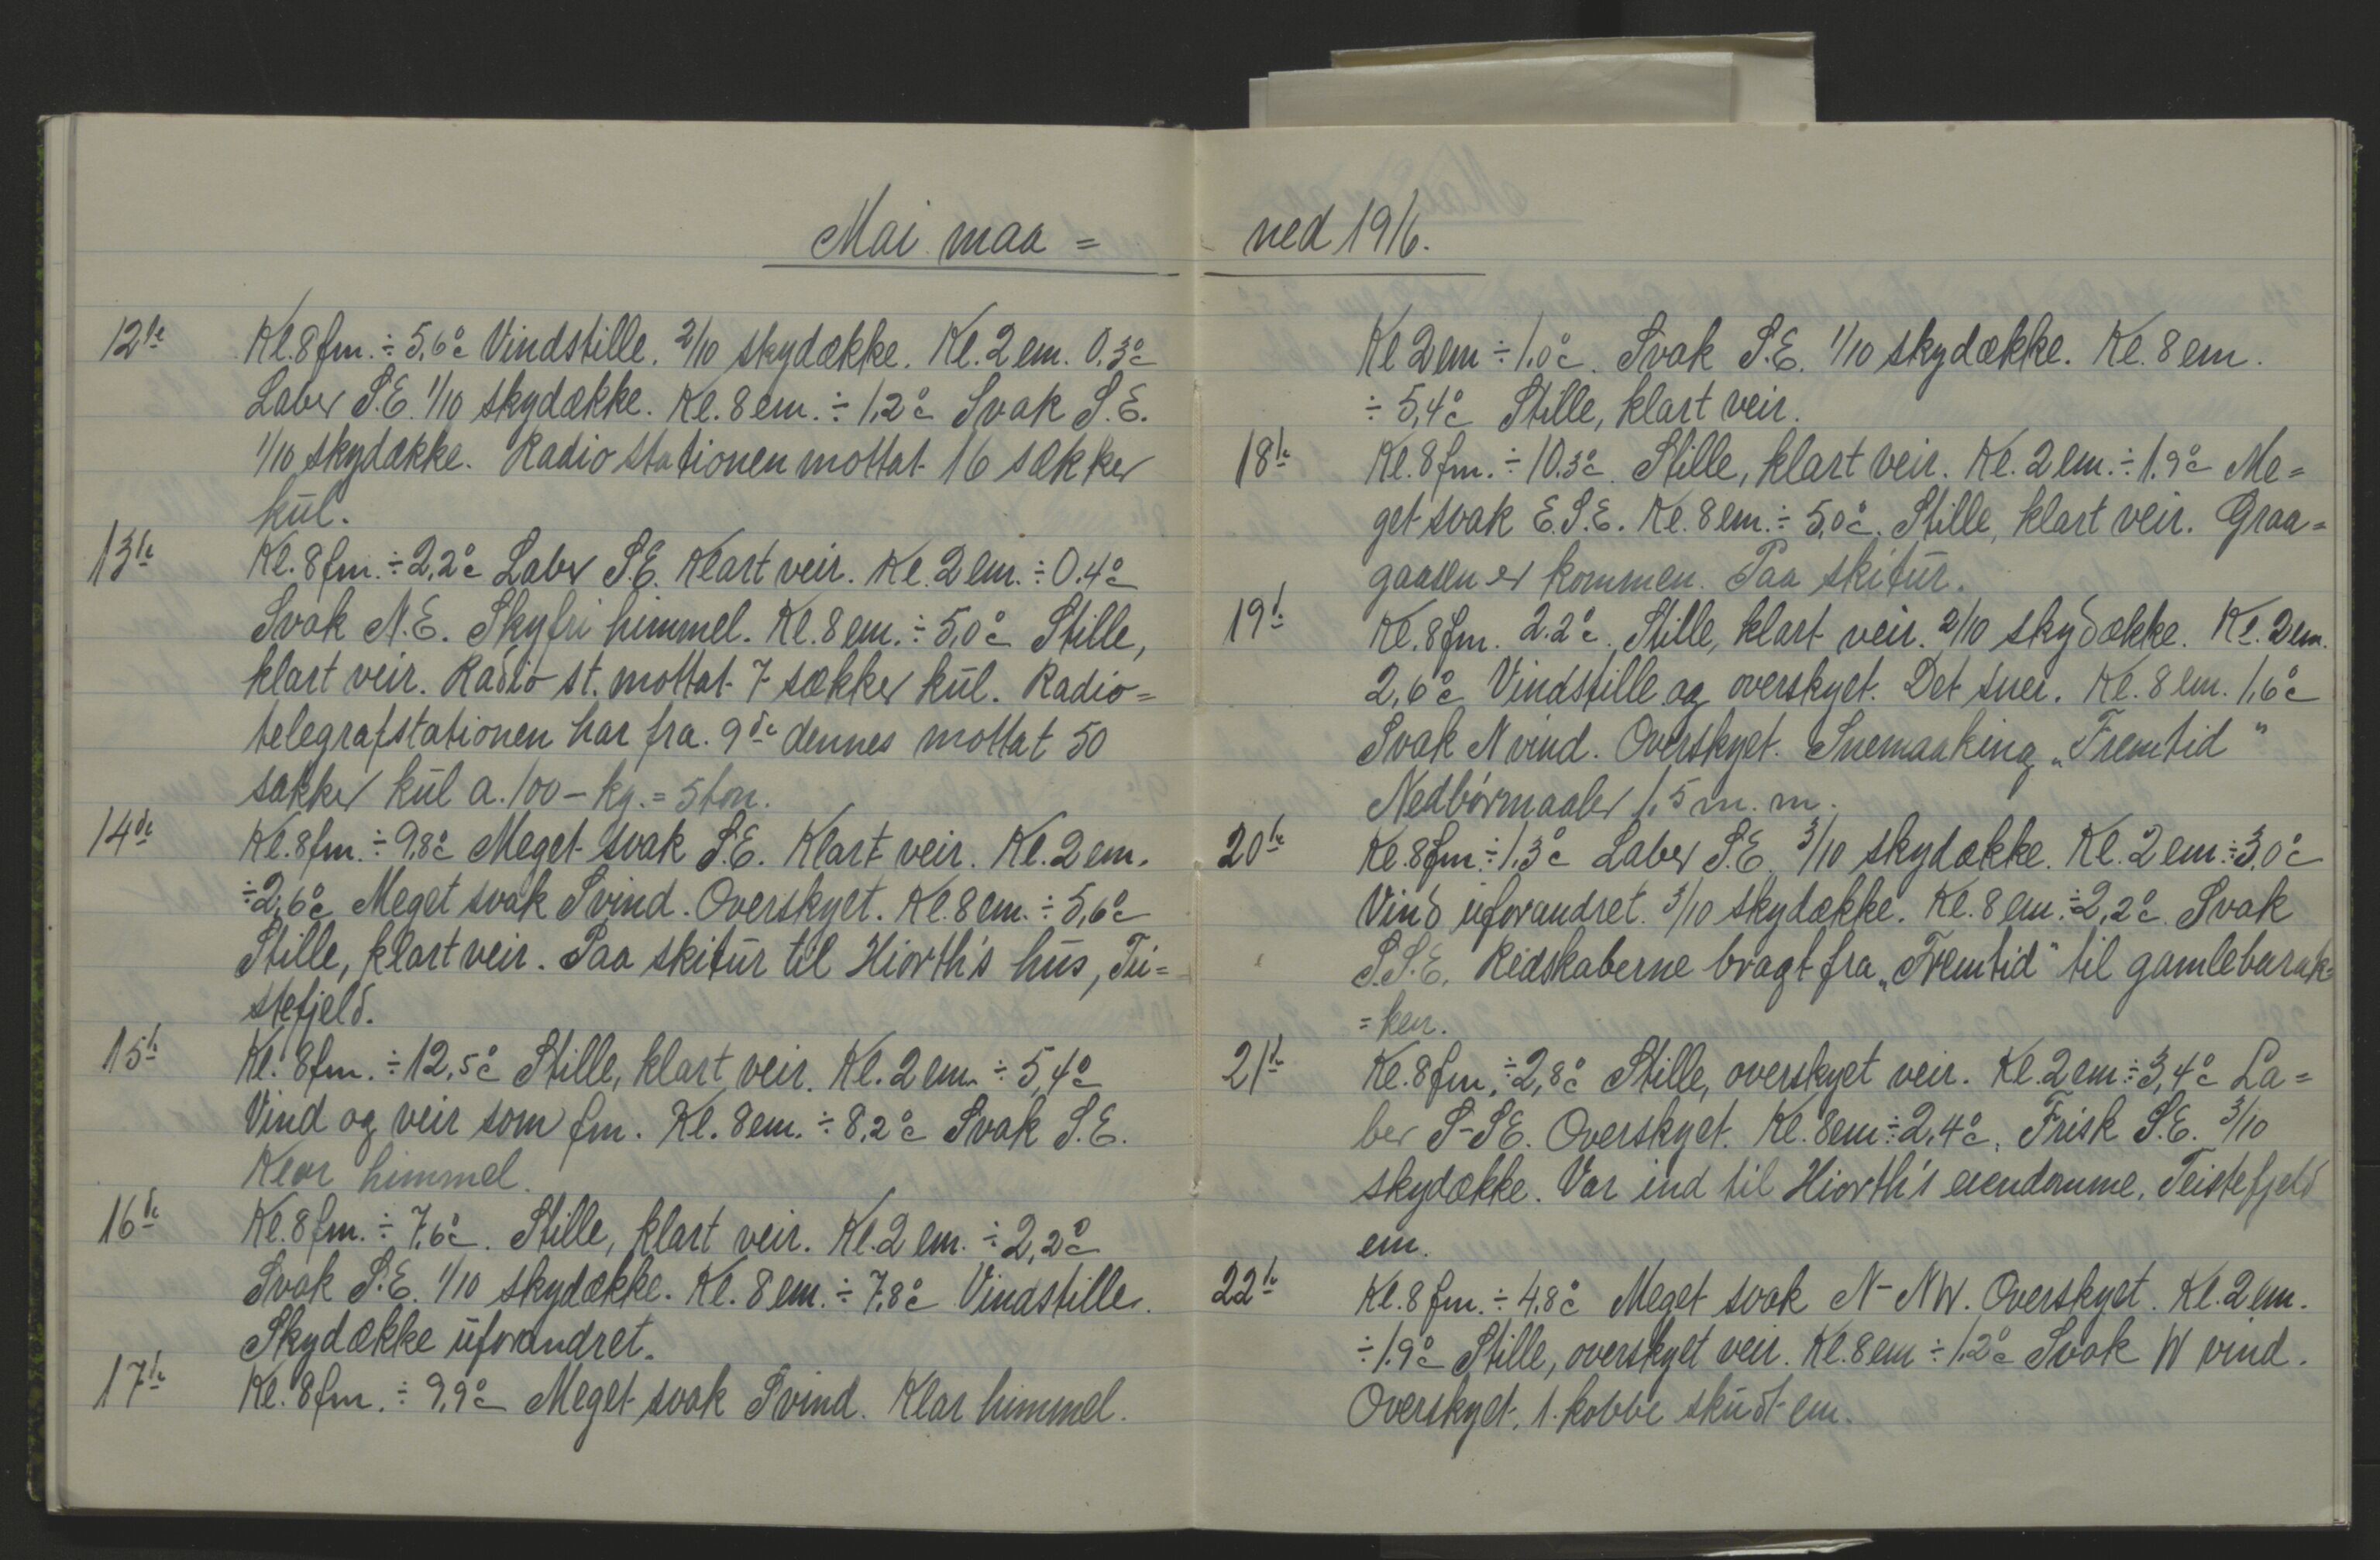 Mai maa=
12te Kl. 8 fm. ÷ 5,6°c Vindstille. 2/10 skydække. Kl. 2 em. 0.3°c
Laber S.E. 1/10 skydække. Kl. 8 em. ÷ 1,2°c Svak S.E.
1/10 skydække. Radio stationen mottat 16 sækker
kūl.
13de Kl. 8 fm. ÷ 2,2°c Laber S.E. Klart veir. Kl. 2 em. ÷ 0.4°c
Svak N.E. Skyfri himmel. Kl. 8 em. ÷ 5,0°c Stille,
klart veir. Radio st. mottat 7 sækker kūl. Radio=
telegrafstationen har fra. 9de dennes mottat 50
sækker kūl a. 100 – kg. = 5 ton.
14de Kl. 8 fm. ÷ 9,8°c Meget svak S.E. Klart veir. Kl. 2 em.
÷ 2,6°c Meget svak S vind. Overskyet. Kl. 8 em. ÷ 5,6°c
Stille, klart veir. Paa skitūr til Hiorth's hūs, Tei=
stefjeld.
15de Kl. 8 fm. ÷ 12,5°c Stille, klart veir. Kl. 2 em. ÷ 5,4°c
Vind og veir som fm. Kl. 8 em. ÷ 8,2°c Svak S.E.
Klar himmel.
16de Kl. 8 fm. ÷ 7,6°c. Stille, klart veir. Kl. 2 em. ÷ 2,2°c
Svak S.E. 1/10 skydække. Kl. 8 em. ÷ 7,8°c Vindstille.
Skydække ūforandret.
17de Kl. 8 fm. ÷ 9,9°c Meget svak S vind. Klar himmel.
ned 1916.
Kl 2 em ÷ 1,0°c. Svak S.E. 1/10 skydække. Kl. 8 em.
÷ 5,4°c Stille, klart veir.
18de Kl. 8 fm. ÷ 10.3°c. Stille, klart veir. Kl. 2 em. ÷ 1.9°c Me=
get svak E.S.E. Kl. 8 em. ÷ 5,0°c. Stille, klart veir. Graa=
gaasen er kommen. Paa skitūr.
19de Kl. 8 fm. 2.2°c. Stille, klart veir. 2/10 skydække. Kl. 2 em.
2,6°c Vindstille og overskyet. Det snei. Kl. 8 em. 1,6°c
Svak N vind. Overskyet. Snemaaking „Fremtid"
Nedbörmaaler 1,5 m.m.
20de Kl. 8 fm. ÷ 1,3°c Laber S.E. 3/10 skydække. Kl. 2 em. ÷ 3,0°c
Vind ūforandret. 3/10 skydække. Kl. 8 em. ÷ 2,2°c. Svak
S.S.E. Redskaberne bragt fra „Fremtid" til gamlebarak=
=ken.
21de Kl. 8 fm. ÷ 2,8°c Stille, overskyet veir. Kl. 2 em ÷ 3,4°c La=
ber S-SE. Overskyet. Kl. 8 em ÷ 2,4°c. Frisk S.E. 3/10
skydække. Var ind til Hiorth's eiendomme, Teistefjeld
em.
22de Kl. 8 fm. ÷ 4,8°c Meget svak N–NW. Overskyet. Kl. 2 em.
÷ 1.9°c Stille, overskyet veir. Kl. 8 em ÷ 1.2°c Svak W vind.
Overskyet. 1. kobbe skūdt em.